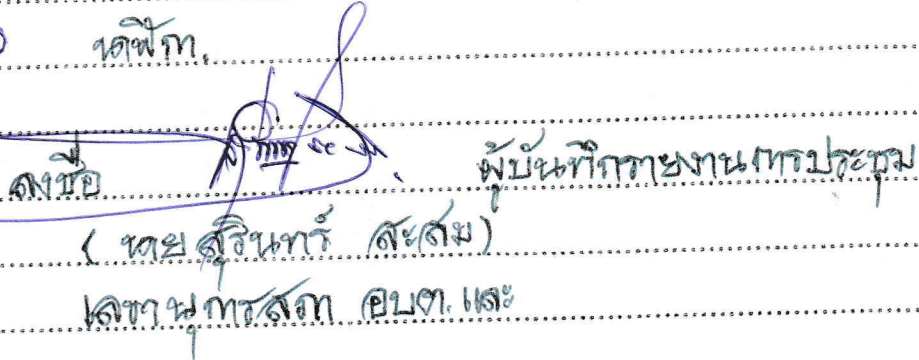 นาฬิกา.
ลงชื่อ ผู้บันทึกรายงานการประชุม
( นายสุรินทร์ สะสม)
เลขานุการสภา อบต. และ